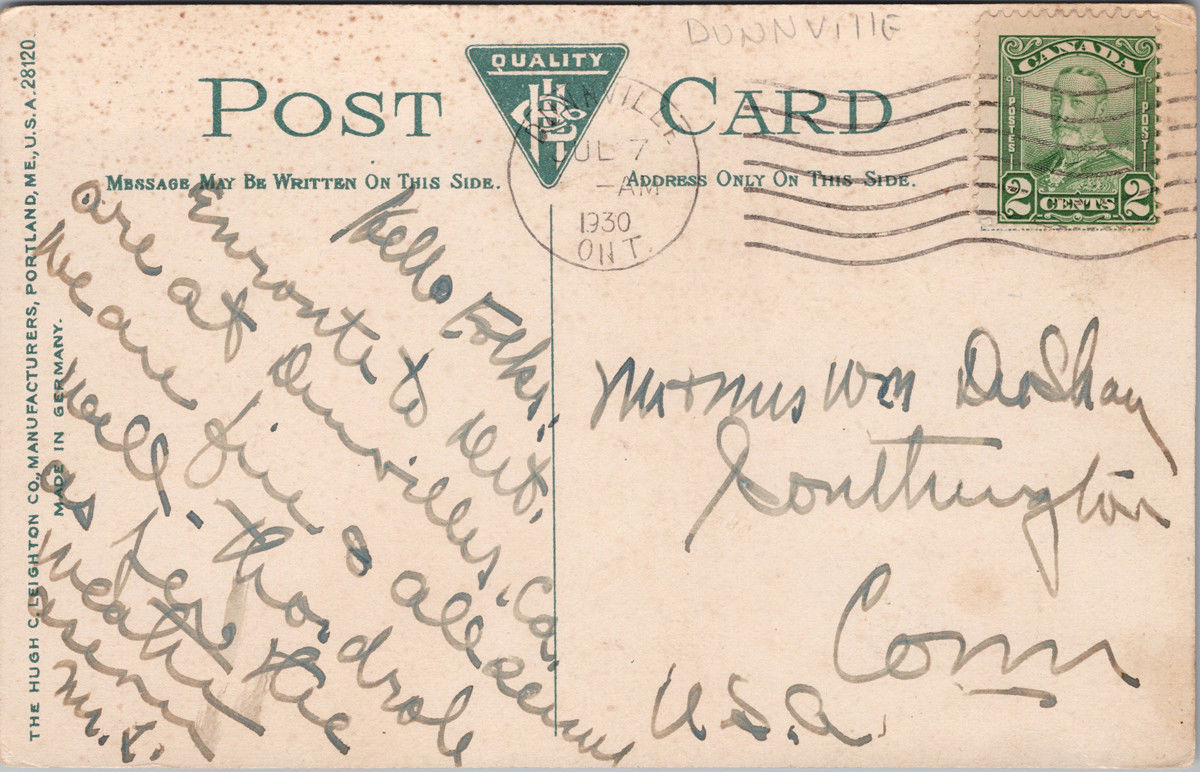 DUNNVIllE
POST CARD
QUALITY
MESSAGE MAY BE WRITTEN ON THIS SIDE.
ADDRESS ONLY ON THIS SIDE.
DUNNVILLE
JUL 7
-AM
1930
ONT.
CANADA
POSTES
POST
2 CENTS 2
THE HUGH C. LEIGHTON CO., MANUFACTURERS, PORTLAND, ME., U.S.A. 28120
MADE IN GERMANY.
Hello Folks:
Enroute to Det.
are at Dunnvilles, Ca.
We are fine & all seem
well.
as
the
Mr & Mrs Wm DeShay
Southington
Conn
U.S.A.